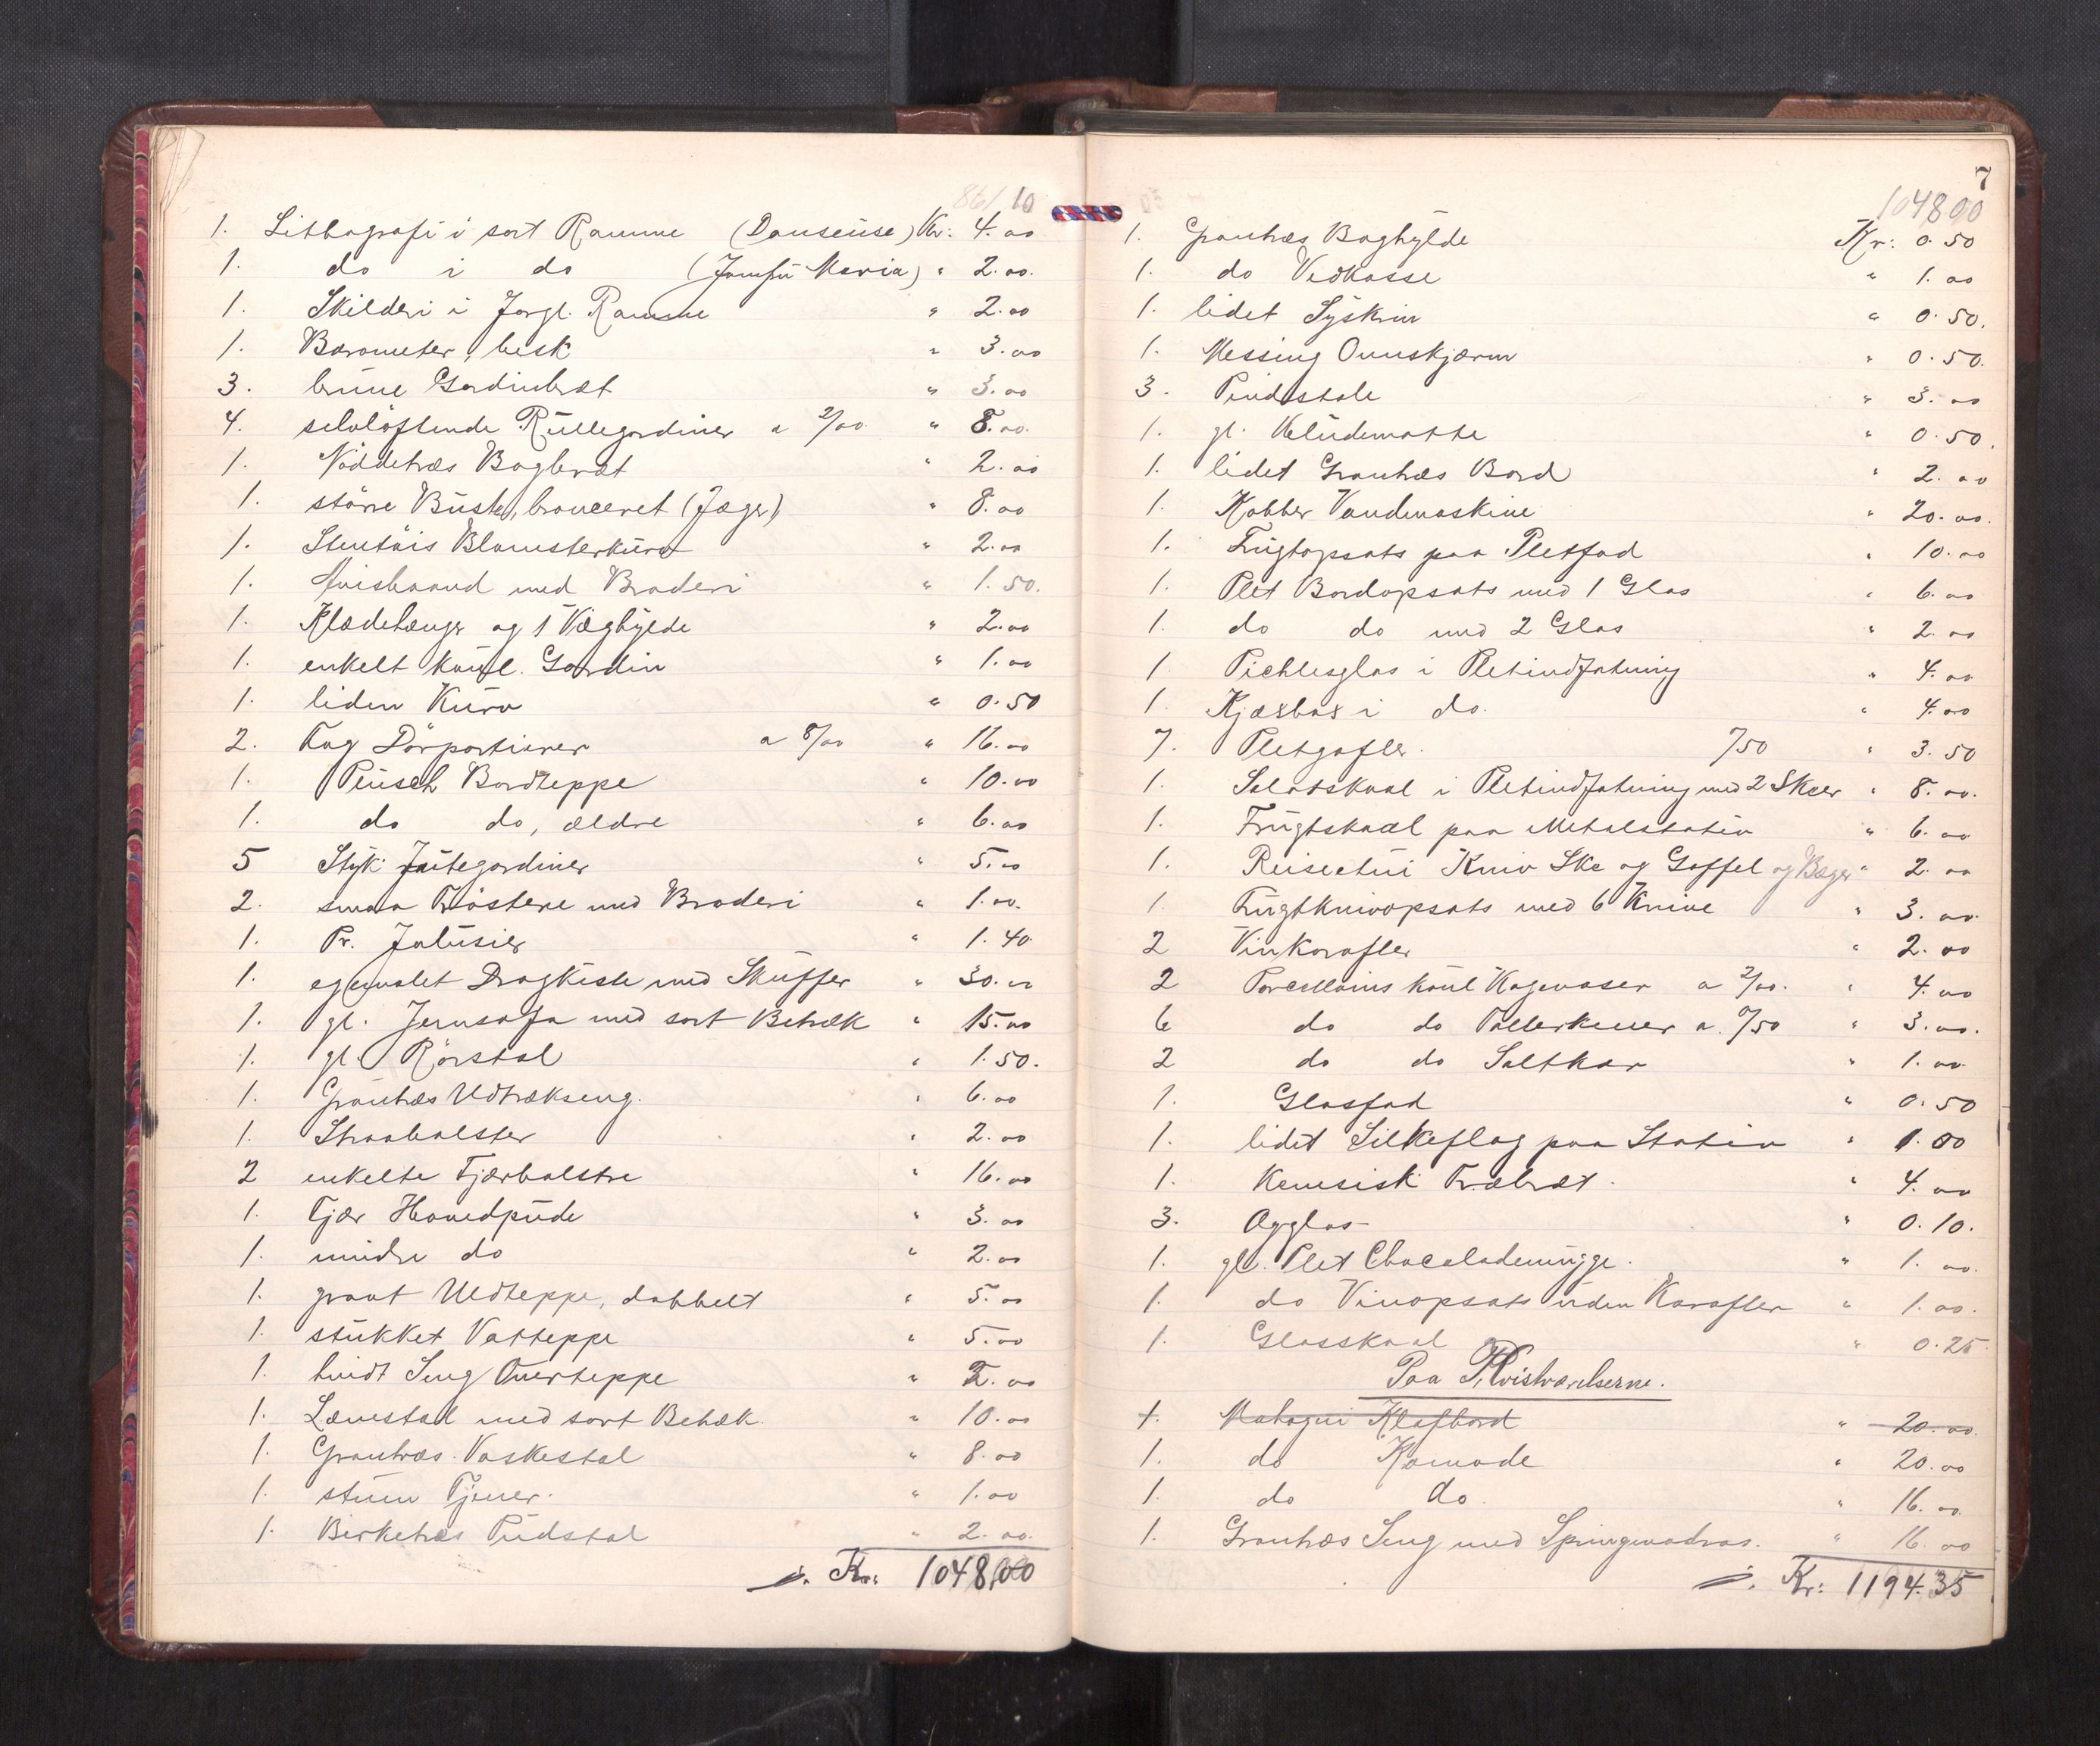 861 10
1. Lithografi i sort Ramme (Danseuse) Kr. 4.00
1. do i do (Jomfru Maria) " 2.00.
1. Skilderi i forgl. Ramme " 2.00
1. Barometer, besk " 3.00
3. brune Gardinbræt " 3.00
4. selvløftende Rullegardiner a 2/00 " 8.00.
1. Nöddetræs Bogbræt " 2.00
1. större Buste, bronceret (Jæger) " 8.00
1. Stentöis Blomsterkurv " 2.00
1. Avisbaand med Broderi " 1.50.
1. Klædehænger og 1 Væghylde " 2.00
1. enkelt Gardin " 1.00
1. liden Kurv " 0.50
2. Fag Dörportierer a 8/00 " 16.00
1. Plusch Bordteppe " 10.00
1. do do, ældre " 6.00
5 Styk. Jutegardiner " 5.00
2. smaa Tröstere med Broderi " 1.00.
1. Pr. Jalusier " 1.40
1. egemalet Dragkiste med Skuffer " 30.00
1. gl. Jernsofa med sort Betræk " 15.00
1. gl. Rörstol " 1.50.
1. Grantræs Udtrækseng. " 6.00
1. Straabolster " 2.00
2 enkelte Fjærbolstre " 16.00
1. Fjær Hovedpude " 3.00
1. mindre do " 2.00
1. graat Uldteppe, dobbelt " 5.00
1. stukket Vatteppe " 5.00
1. hvidt Seng Overteppe " 2.00
1. Lænestol med sort Betræk. " 10.00
1. Grantræs Vaskestol " 8.00
1. stum Tjener. " 1.00
1. Birketræs Pudstol " 2.00.
Kr. 1048,00
7
104800
1. Grantræs Boghylde Kr: 0.50
1. do Vedkasse " 1.00
1. lidet Syskrin " 0.50.
1. Messing Ovnskjærm " 0.50.
3. Pindestole " 3.00
1. gl. Kludematte " 0.50.
1. lidet Grantræs Bord " 2.00
1. Kobber Vandmaskine " 20.00.
1. Frugtopsats paa Pletfod " 10.00
1. Plet Bordopsats med 1 Glas " 6.00
1. do do med 2 Glas " 2.00
1. Picklesglas i Pletindfatning " 4.00
1. Kjæxbox i do. " 4.00
7. Pletgafler. /50 " 3.50
1. Salatskaal i Pletindfatning med 2 Skeer " 8.00.
1. Frugtskaal paa Metalstativ " 6.00
1. Reiseetui Kniv Ske og Gaffel og Bæger " 2.00
1. Frugtknivopsats med 6 Knive " 3.00.
2 Vinkarafler " 2.00
2 Porcellains Kagevaser a 2/00. " 4.00
6 do do Tallerkener a /50 " 3.00.
2 do do Saltkar " 1.00.
1. Glasfad " 0.50
1. lidet Silkeflag paa Stativ " 1.00
1. Kinesisk Træbræt. " 4.00
3. Ægglas " 0.10.
1. gl. Plet Chocolademugge. " 1.00.
1. do Vinopsats uden Karafler " 1.00.
1. Glasskaal " 0.25
Paa Kvistværelserne.
1. Mahogni Klafbord " 20.00.
1. do Komode " 20.00
1. do do. " 16.00
1. Grantræs Seng med Springmadras. " 16.00
Kr: 1194.35